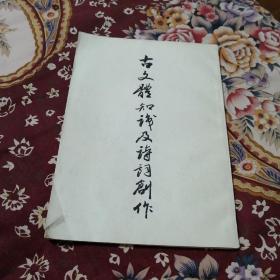 古文體知识及詩詞創作